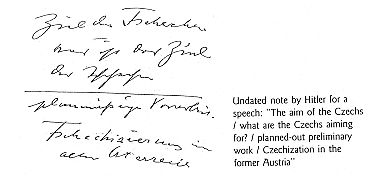 Ziel der Tschechen
was ist das Ziel
der Tschechen
planmäßige
Tschechisierung im
alten Österreich
Undated note by Hitler for a
speech: "The aim of the Czechs
/ what are the Czechs aiming
for? / planned-out preliminary
work / Czechization in the
former Austria"